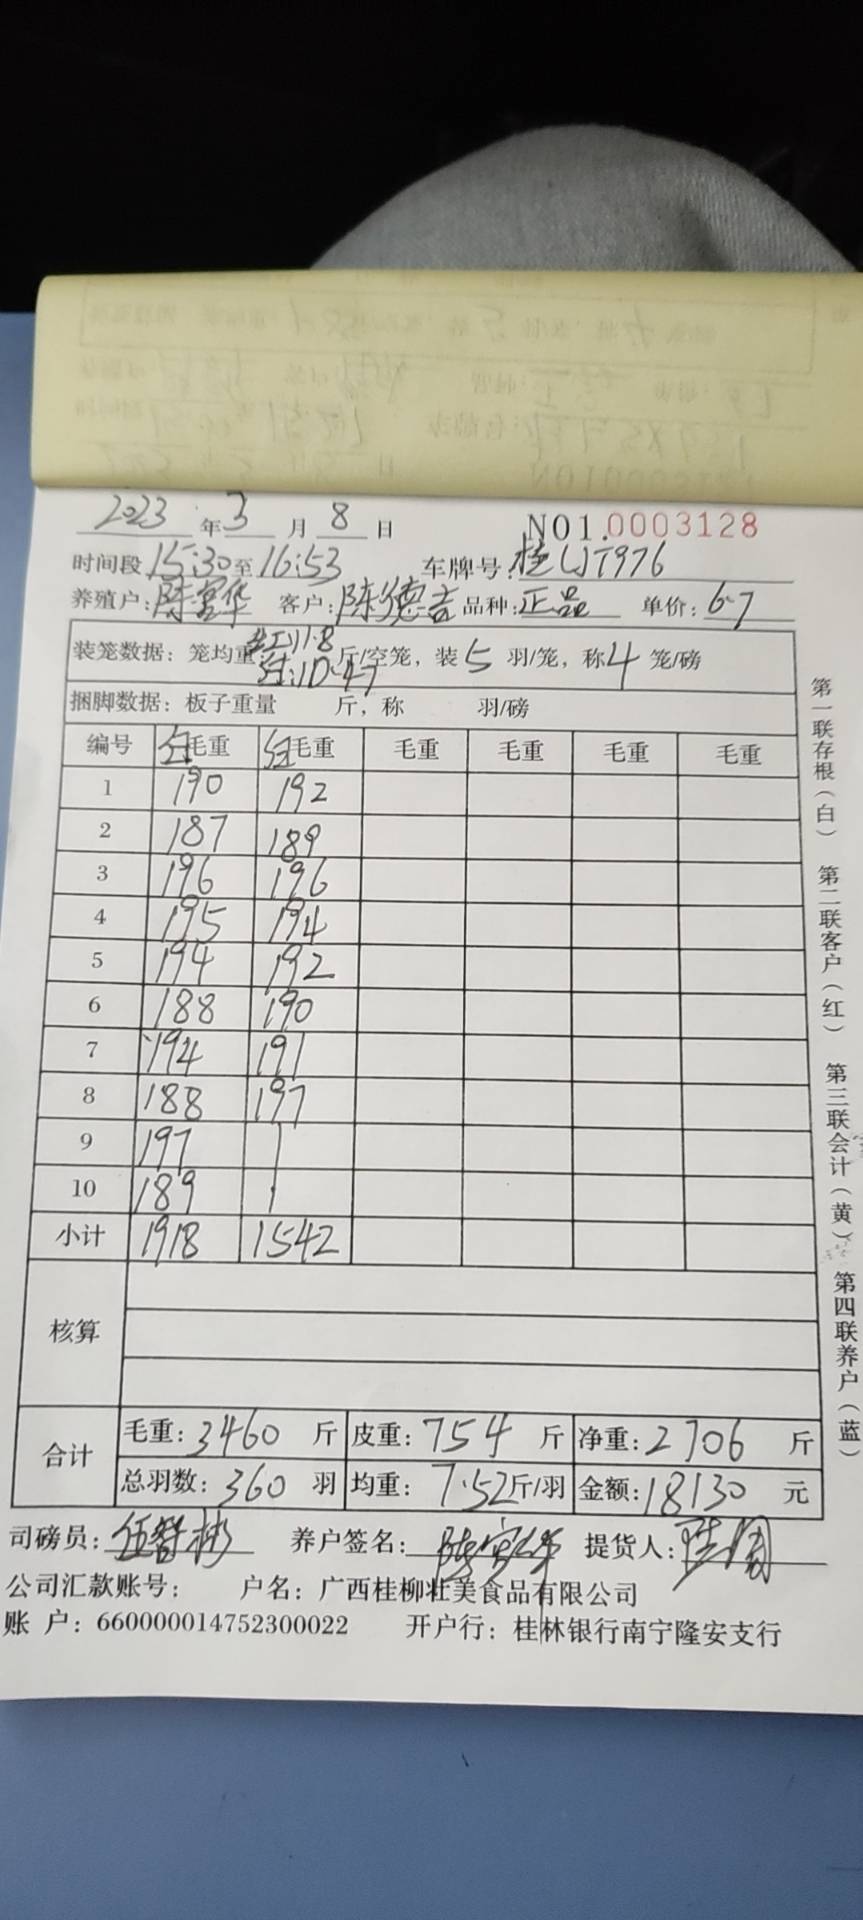 2023 年 3 月 8 日 NO1.0003128
时间段 15:30 至 16:53 车牌号: 桂WT976
养殖户: 陈富华 客户: 陈德吉 品种: 正品 单价: 6.7
装笼数据: 笼均重 11.8 斤/空笼, 装 5 羽/笼, 称 4 笼/磅
红:10.47
捆脚数据: 板子重量 斤, 称 羽/磅
编号 红毛重 红毛重 毛重 毛重 毛重 毛重
1 190 192
2 187 189
3 196 196
4 195 194
5 194 192
6 188 190
7 194 191
8 188 197
9 197
10 189
小计 1918 1542
核算
合计 毛重: 3460 斤 皮重: 754 斤 净重: 2706 斤
总羽数: 360 羽 均重: 7.52 斤/羽 金额: 18130 元
司磅员: 伍智彬 养户签名: 陈富华 提货人:
公司汇款账号: 户名: 广西桂柳壮美食品有限公司
账 户: 660000014752300022 开户行: 桂林银行南宁隆安支行
第一联存根(白) 第二联客户(红) 第三联会计(黄) 第四联养户(蓝)